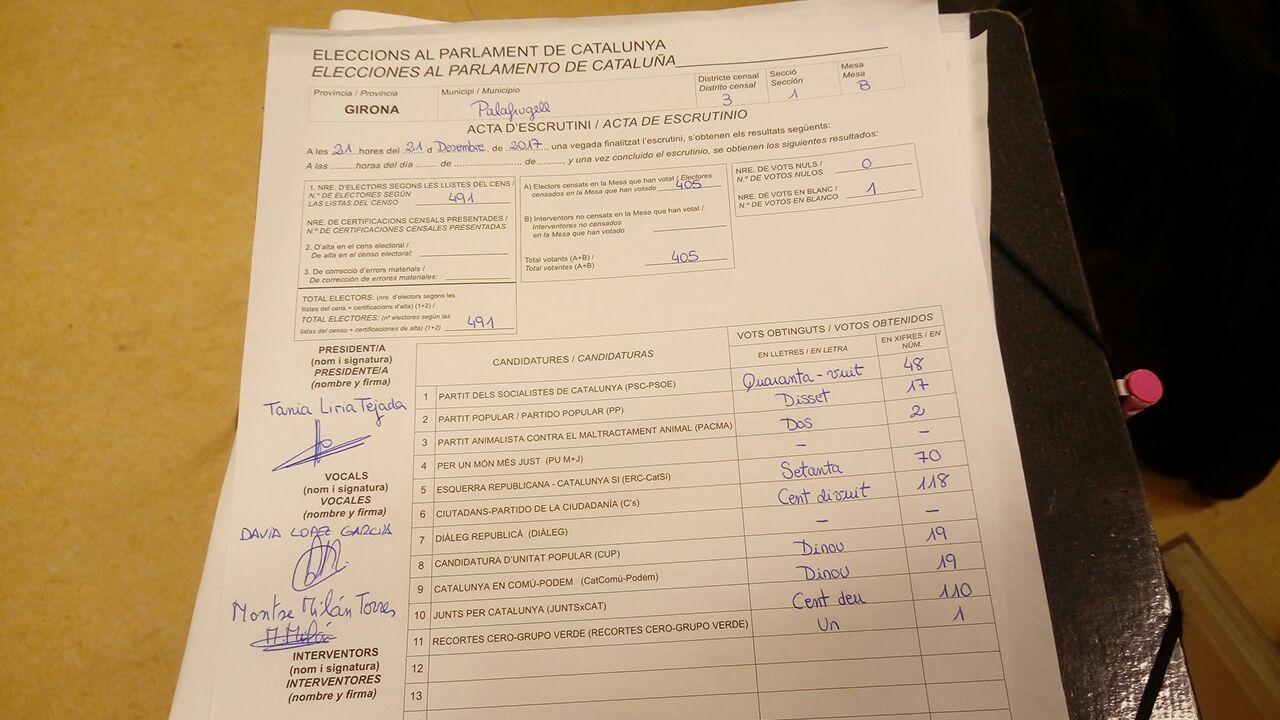 ELECCIONS AL PARLAMENT DE CATALUNYA
ELECCIONES AL PARLAMENTO DE CATALUÑA
Província / Provincia
GIRONA
Municipi / Municipio
Palafrugell
Districte censal
Distrito censal
3
Secció
Sección
1
Mesa
Mesa
B
ACTA D'ESCRUTINI / ACTA DE ESCRUTINIO
A les 21 hores del 21 d Desembre de 2017, una vegada finalitzat l'escrutini, s'obtenen els resultats següents:
A las .........horas del día ........ de ........................ de ........, y una vez concluido el escrutinio, se obtienen los siguientes resultados:
1. NRE. D'ELECTORS SEGONS LES LLISTES DEL CENS /
N.º DE ELECTORES SEGÚN
LAS LISTAS DEL CENSO 491
NRE. DE CERTIFICACIONS CENSALS PRESENTADES /
N.º DE CERTIFICACIONES CENSALES PRESENTADAS
2. D'alta en el cens electoral /
De alta en el censo electoral:
3. De correcció d'errors materials /
De corrección de errores materiales:
TOTAL ELECTORS: (nre. d'electors segons les
llistes del cens + certificacions d'alta) (1+2) /
TOTAL ELECTORES: (nº electores según las
listas del censo + certificaciones de alta) (1+2) 491
A) Electors censats en la Mesa que han votat / Electores
censados en la Mesa que han votado 405
B) Interventors no censats en la Mesa que han votat /
Interventores no censados
en la Mesa que han votado
Total votants (A+B) /
Total votantes (A+B) 405
NRE. DE VOTS NULS /
N.º DE VOTOS NULOS 0
NRE. DE VOTS EN BLANC /
N.º DE VOTOS EN BLANCO 1
PRESIDENT/A
(nom i signatura)
PRESIDENTE/A
(nombre y firma)
Tania Liria Tejada
VOCALS
(nom i signatura)
VOCALES
(nombre y firma)
DAVID LOPEZ GARCIA
Montse Milán Torres
M. Milán
INTERVENTORS
(nom i signatura)
INTERVENTORES
(nombre y firma)
CANDIDATURES / CANDIDATURAS
VOTS OBTINGUTS / VOTOS OBTENIDOS
EN LLETRES / EN LETRA
EN XIFRES / EN NÚM.
1 PARTIT DELS SOCIALISTES DE CATALUNYA (PSC-PSOE) Quaranta-vuit 48
2 PARTIT POPULAR / PARTIDO POPULAR (PP) Disset 17
3 PARTIT ANIMALISTA CONTRA EL MALTRACTAMENT ANIMAL (PACMA) Dos 2
4 PER UN MÓN MÉS JUST (PU M+J) – –
5 ESQUERRA REPUBLICANA - CATALUNYA SI (ERC-CatSí) Setanta 70
6 CIUTADANS-PARTIDO DE LA CIUDADANÍA (C's) Cent divuit 118
7 DIÀLEG REPUBLICÀ (DIÀLEG) – –
8 CANDIDATURA D'UNITAT POPULAR (CUP) Dinou 19
9 CATALUNYA EN COMÚ-PODEM (CatComú-Podem) Dinou 19
10 JUNTS PER CATALUNYA (JUNTSxCAT) Cent deu 110
11 RECORTES CERO-GRUPO VERDE (RECORTES CERO-GRUPO VERDE) Un 1
12
13